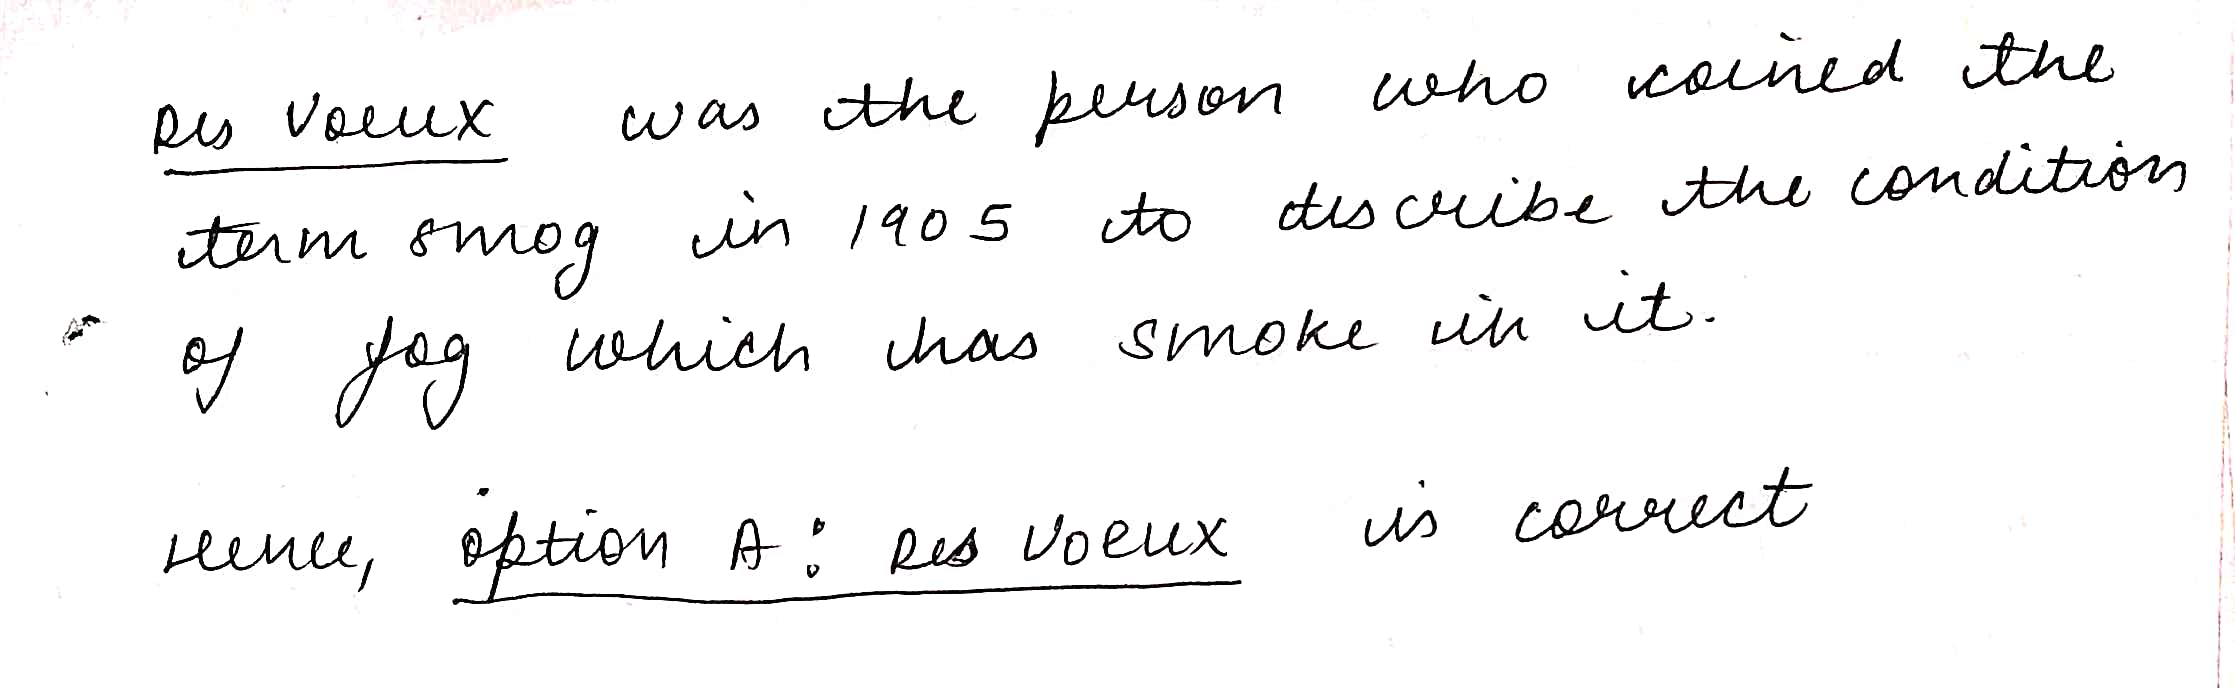 Des Voeux was the person who coined the
term smog in 1905 to describe the condition
of fog which has smoke in it.
Hence, option A: Des Voeux is correct